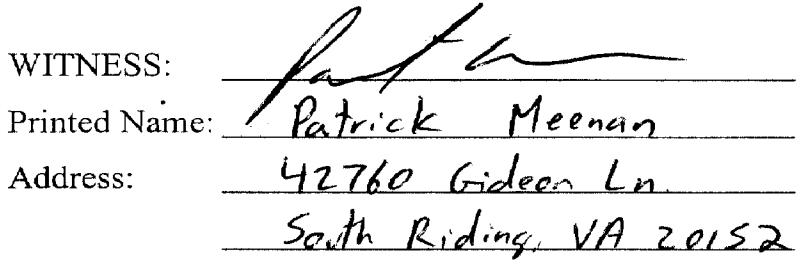 WITNESS:
Printed Name: Patrick Meenan
Address: 42760 Gideon Ln.
South Riding, VA 20152